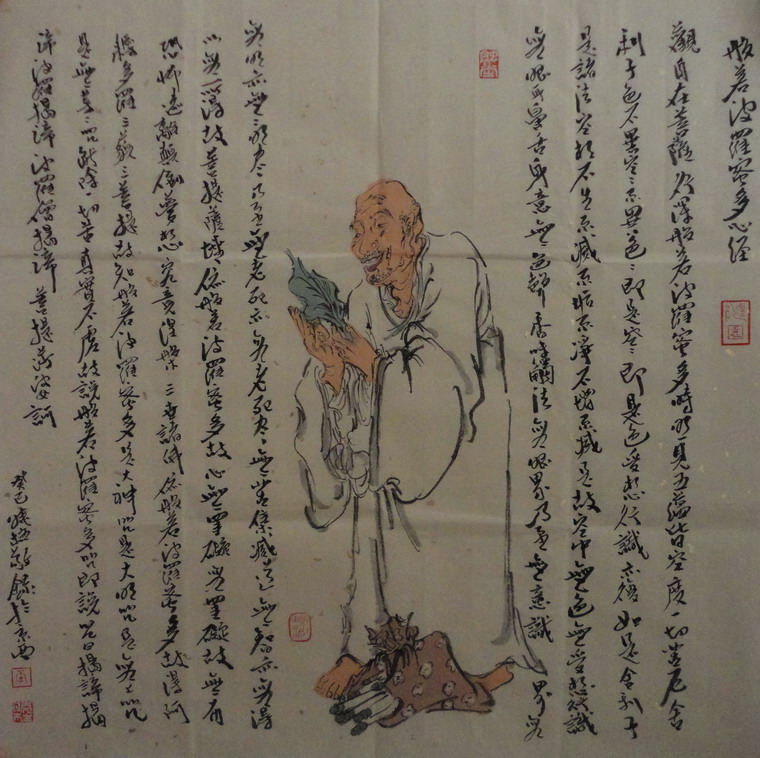 般若波羅蜜多心經
觀自在菩薩行深般若波羅蜜多時照見五蘊皆空度一切苦厄舍
利子色不異空々不異色々即是空々即是色受想行識亦復如是舍利子
是諸法空相不生不滅不垢不淨不增不減是故空中無色無受想行識
無眼耳鼻舌身意無色聲香味觸法無眼界乃至無意識界無
無明亦無々明盡乃至無老死亦無老死盡無苦集滅道無智亦無得
以無所得故菩提薩埵依般若波羅蜜多故心無罣礙無罣礙故無有
恐怖遠離顛倒夢想究竟涅槃三世諸佛依般若波羅蜜多故得阿
耨多羅三藐三菩提故知般若波羅蜜多是大神咒是大明咒是無上咒
是無等々咒能除一切苦真實不虛故說般若波羅蜜多咒即說咒曰揭諦揭
諦波羅揭諦波羅僧揭諦菩提薩婆訶
癸巳敬錄於京西